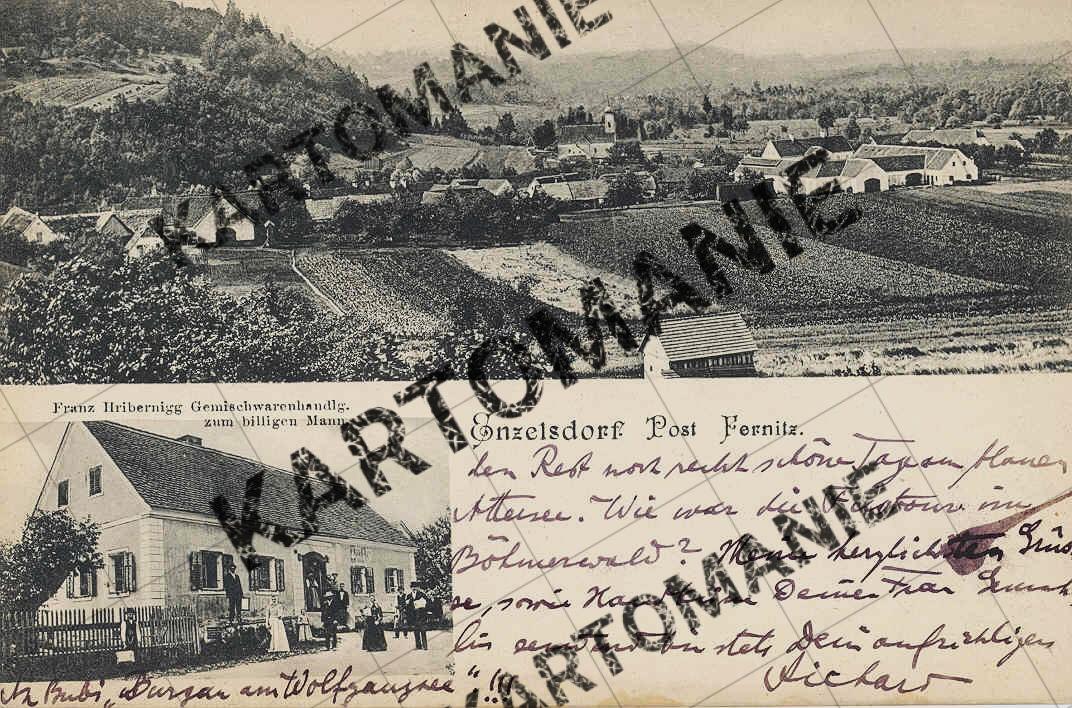 KARTOMANIE
KARTOMANIE
KARTOMANIE
KARTOMANIE
Franz Hribernigg Gemischwarenhandlg.
zum billigen Mann
Enzelsdorf. Post Fernitz.
den Rest noch recht schöne Tage am blauen
Attersee. Wie war die im
Böhmerwald? Meine herzlichsten Grüs-
se, sowie Handküsse Deiner Frau Gemah-
lin sendend von stets Dein aufrichtigen
Richard
Bubi, "Burgau am Wolfgangsee" !!